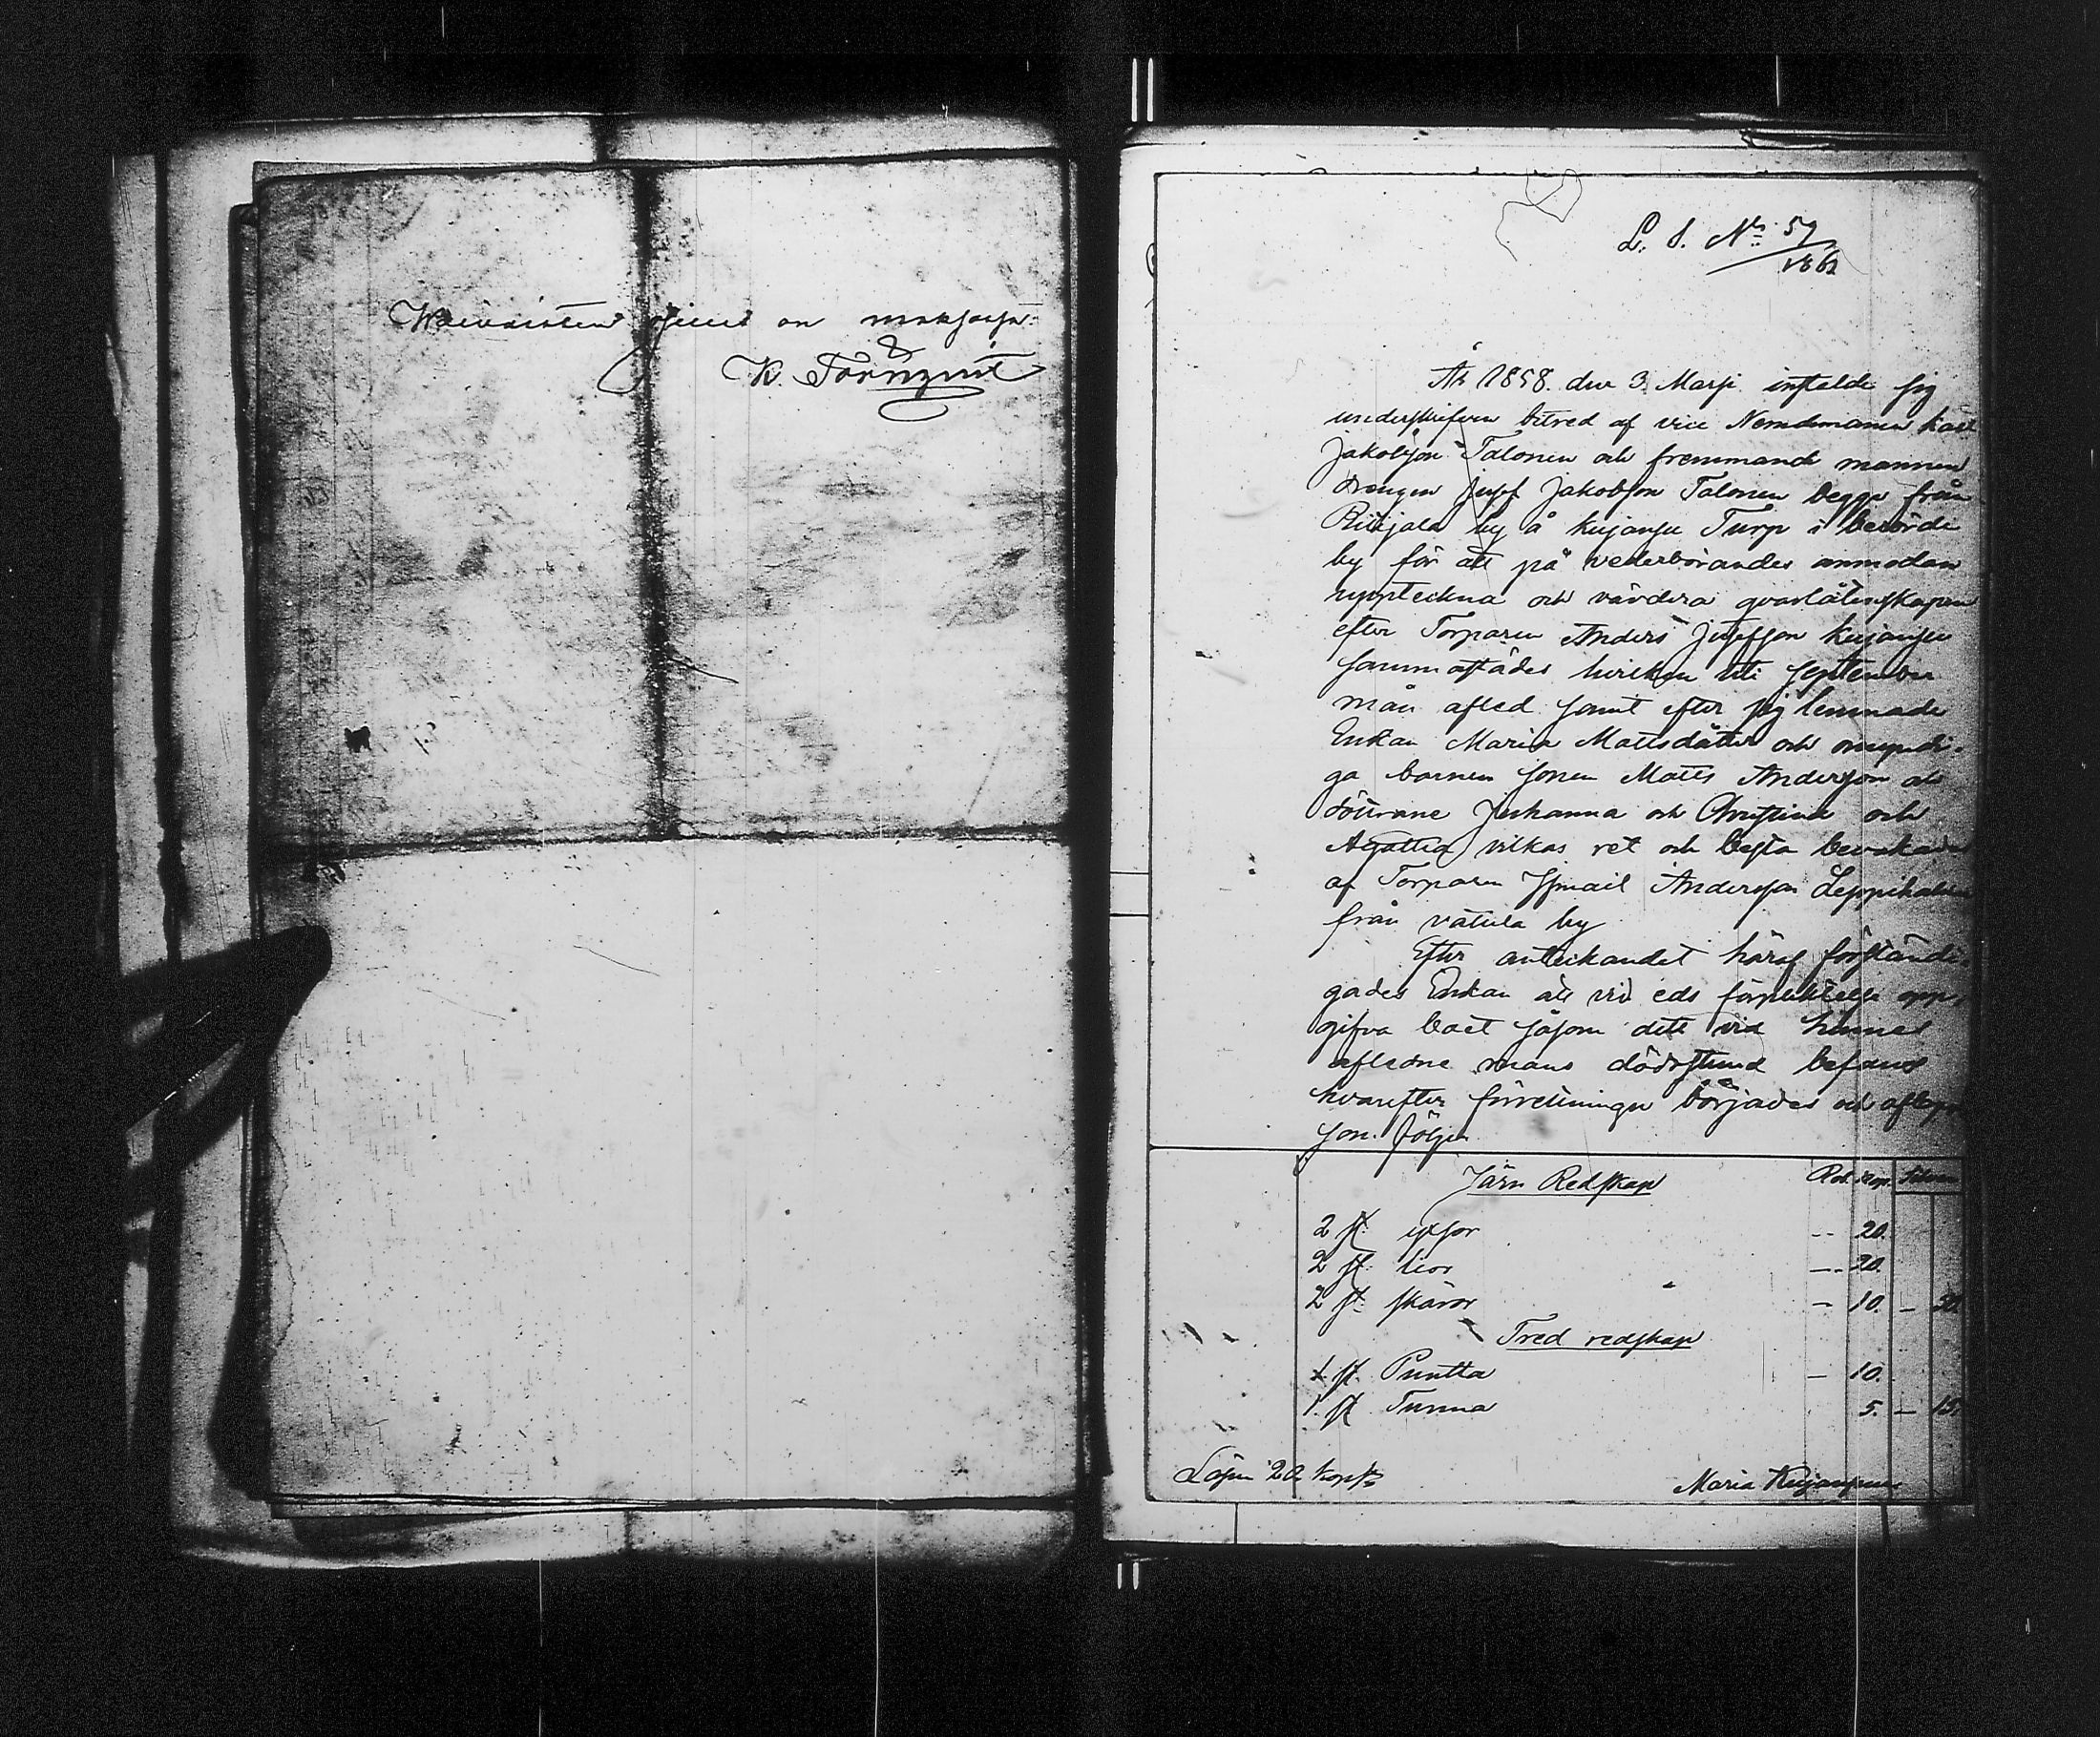 Waivaisten on maksettu
K. Törnqvist
L. S. No 59
1862
År 1858. den 3. Marsi instelde sig
underskrifvin bitred af vice Nemdemannen Karl
Jakobson Talonen och fremmande mannen
drengen Josef Jakobson Talonen begge från
by å Kujanpe Turp i berörde
by för att på vederbörandes anmodan
uppteckna och värdera qvarlåtenskapen
efter Torparen Anders Josefson Kujanpe
sammastädes hvilken uti September
mån afled samt efter sig lemnade
Enkan Maria Mattsdåtter och omyndi-
ga barnen sonen Matts Anderson och
döttrane Johanna och Christina och
Agatha vilkas ret och besta bevakades
af Torparen Ismail Anderson
från vatula by
Efter antecknandet häraf förständi-
gades Enkan att vid eds förpliktelse opp-
gifva boet såsom dett vid hennes
afledne mans dödsstund befans
hvarefter förretningen börjades och aflopp
som följer
Järn Redskap Rub. Kop. Silver
2 st. yxsor -- 20.
2 st. lior -- 20.
2 st. skäror - 10. - 50.
Tred redskap
1 st. Puntta - 10.
1. st Tunna 5. - 15.
Lösen 20 kop. Maria Kujanpää